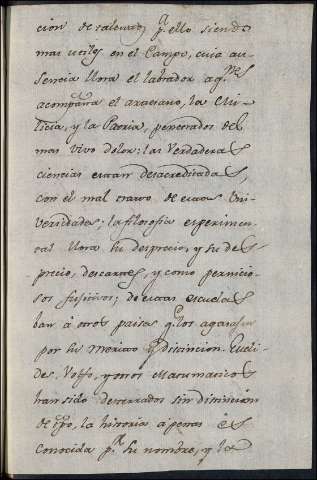 cion de talentos, pr. ello siendo
mas utiles en el Campo, cuia au-
sencia llora el labrador aqnes
acompaña el artesano, la Mi-
licia, y la Patria, penetrados del
mas vivo dolor: las Verdaderas
ciencias estan desacreditadas,
con el mal trato de estas Uni-
versidades; la filosofia experimen-
tal llora su desprecio, y su de
precio, descartes, y como pernicio-
sos fugitivos; de estas escuelas
han à otros paises qe. los agasajan
por su merito y distincion. Eucli-
des. Volfo, y otros Matematicos
han sido desterrados sin distincion
de tpo, la historia apenas es
conocida pr. su nombre, y la